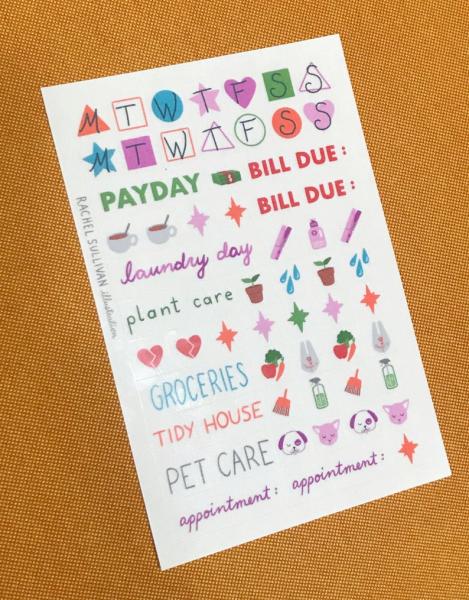 M T W T F S S
M T W T F S S
PAYDAY BILL DUE:
BILL DUE:
RACHEL SULLIVAN illustration
laundry day
plant care
GROCERIES
TIDY HOUSE
PET CARE
appointment: appointment: